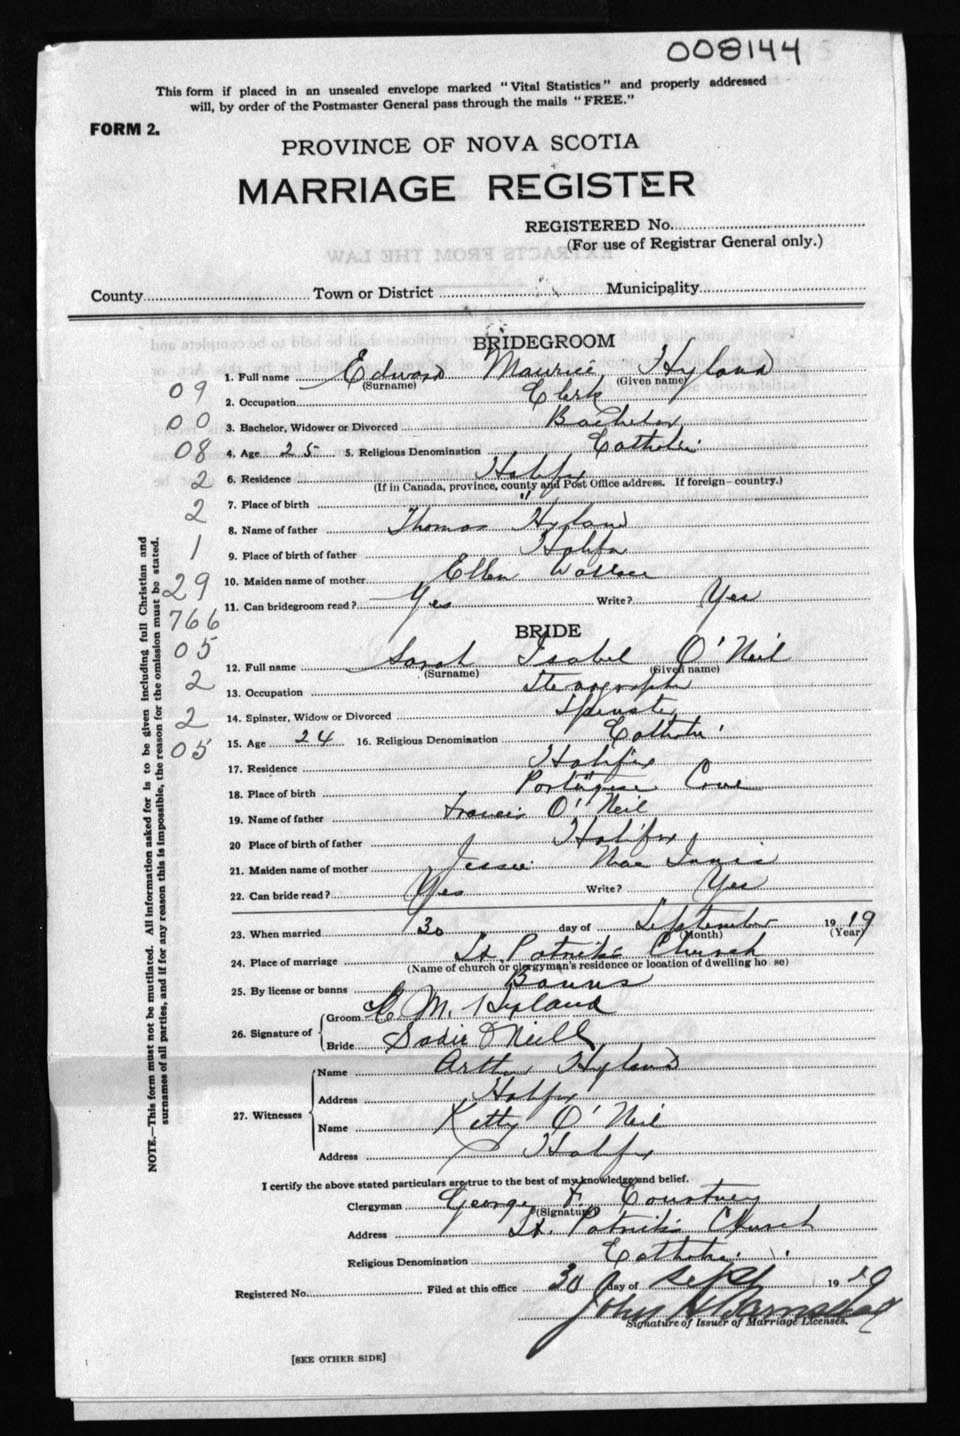 008144
This form if placed in an unsealed envelope marked "Vital Statistics" and properly addressed
will, by order of the Postmaster General pass through the mails "FREE."
FORM 2.
PROVINCE OF NOVA SCOTIA
MARRIAGE REGISTER
REGISTERED No.
(For use of Registrar General only.)
EXTRACTS FROM THE LAW
County Town or District Municipality
BRIDEGROOM
1. Full name Edward Maurice Hyland
(Surname) (Given name)
09
2. Occupation Clerk
00
3. Bachelor, Widower or Divorced Bachelor
08
4. Age 25 5. Religious Denomination Catholic
2
6. Residence Halifax
(If in Canada, province, county and Post Office address. If foreign—country.)
2
7. Place of birth "
8. Name of father Thomas Hyland
1
9. Place of birth of father Halifax
29
10. Maiden name of mother Ellen Wallace
766
11. Can bridegroom read? Yes Write? Yes
BRIDE
05
12. Full name Sarah Isabel O'Neil
(Surname) (Given name)
2
13. Occupation Stenographer
2
14. Spinster, Widow or Divorced Spinster
05
15. Age 24 16. Religious Denomination Catholic
17. Residence Halifax
18. Place of birth Portuguese Cove
19. Name of father Francis O'Neil
20 Place of birth of father Halifax
21. Maiden name of mother Jessie Mac Innis
22. Can bride read? Yes Write? Yes
23. When married 30 day of September 1919
(Month) (Year)
24. Place of marriage St. Patrick's Church
(Name of church or clergyman's residence or location of dwelling ho se)
25. By license or banns Banns
26. Signature of Groom E. M. Hyland
Bride Sadie O'Neill
27. Witnesses
Name Arthur Hyland
Address Halifax
Name Kitty O'Neil
Address Halifax
I certify the above stated particulars are true to the best of my knowledge and belief.
Clergyman George F. Courtney
(Signature)
Address St. Patrick's Church
Religious Denomination Catholic
Registered No. Filed at this office 30 day of Sept 1919
John H Barnstead
Signature of Issuer of Marriage Licenses.
[SEE OTHER SIDE]
NOTE.—This form must not be mutilated. All information asked for is to be given including full Christian and
surnames of all parties, and if for any reason this is impossible, the reason for the omission must be stated.